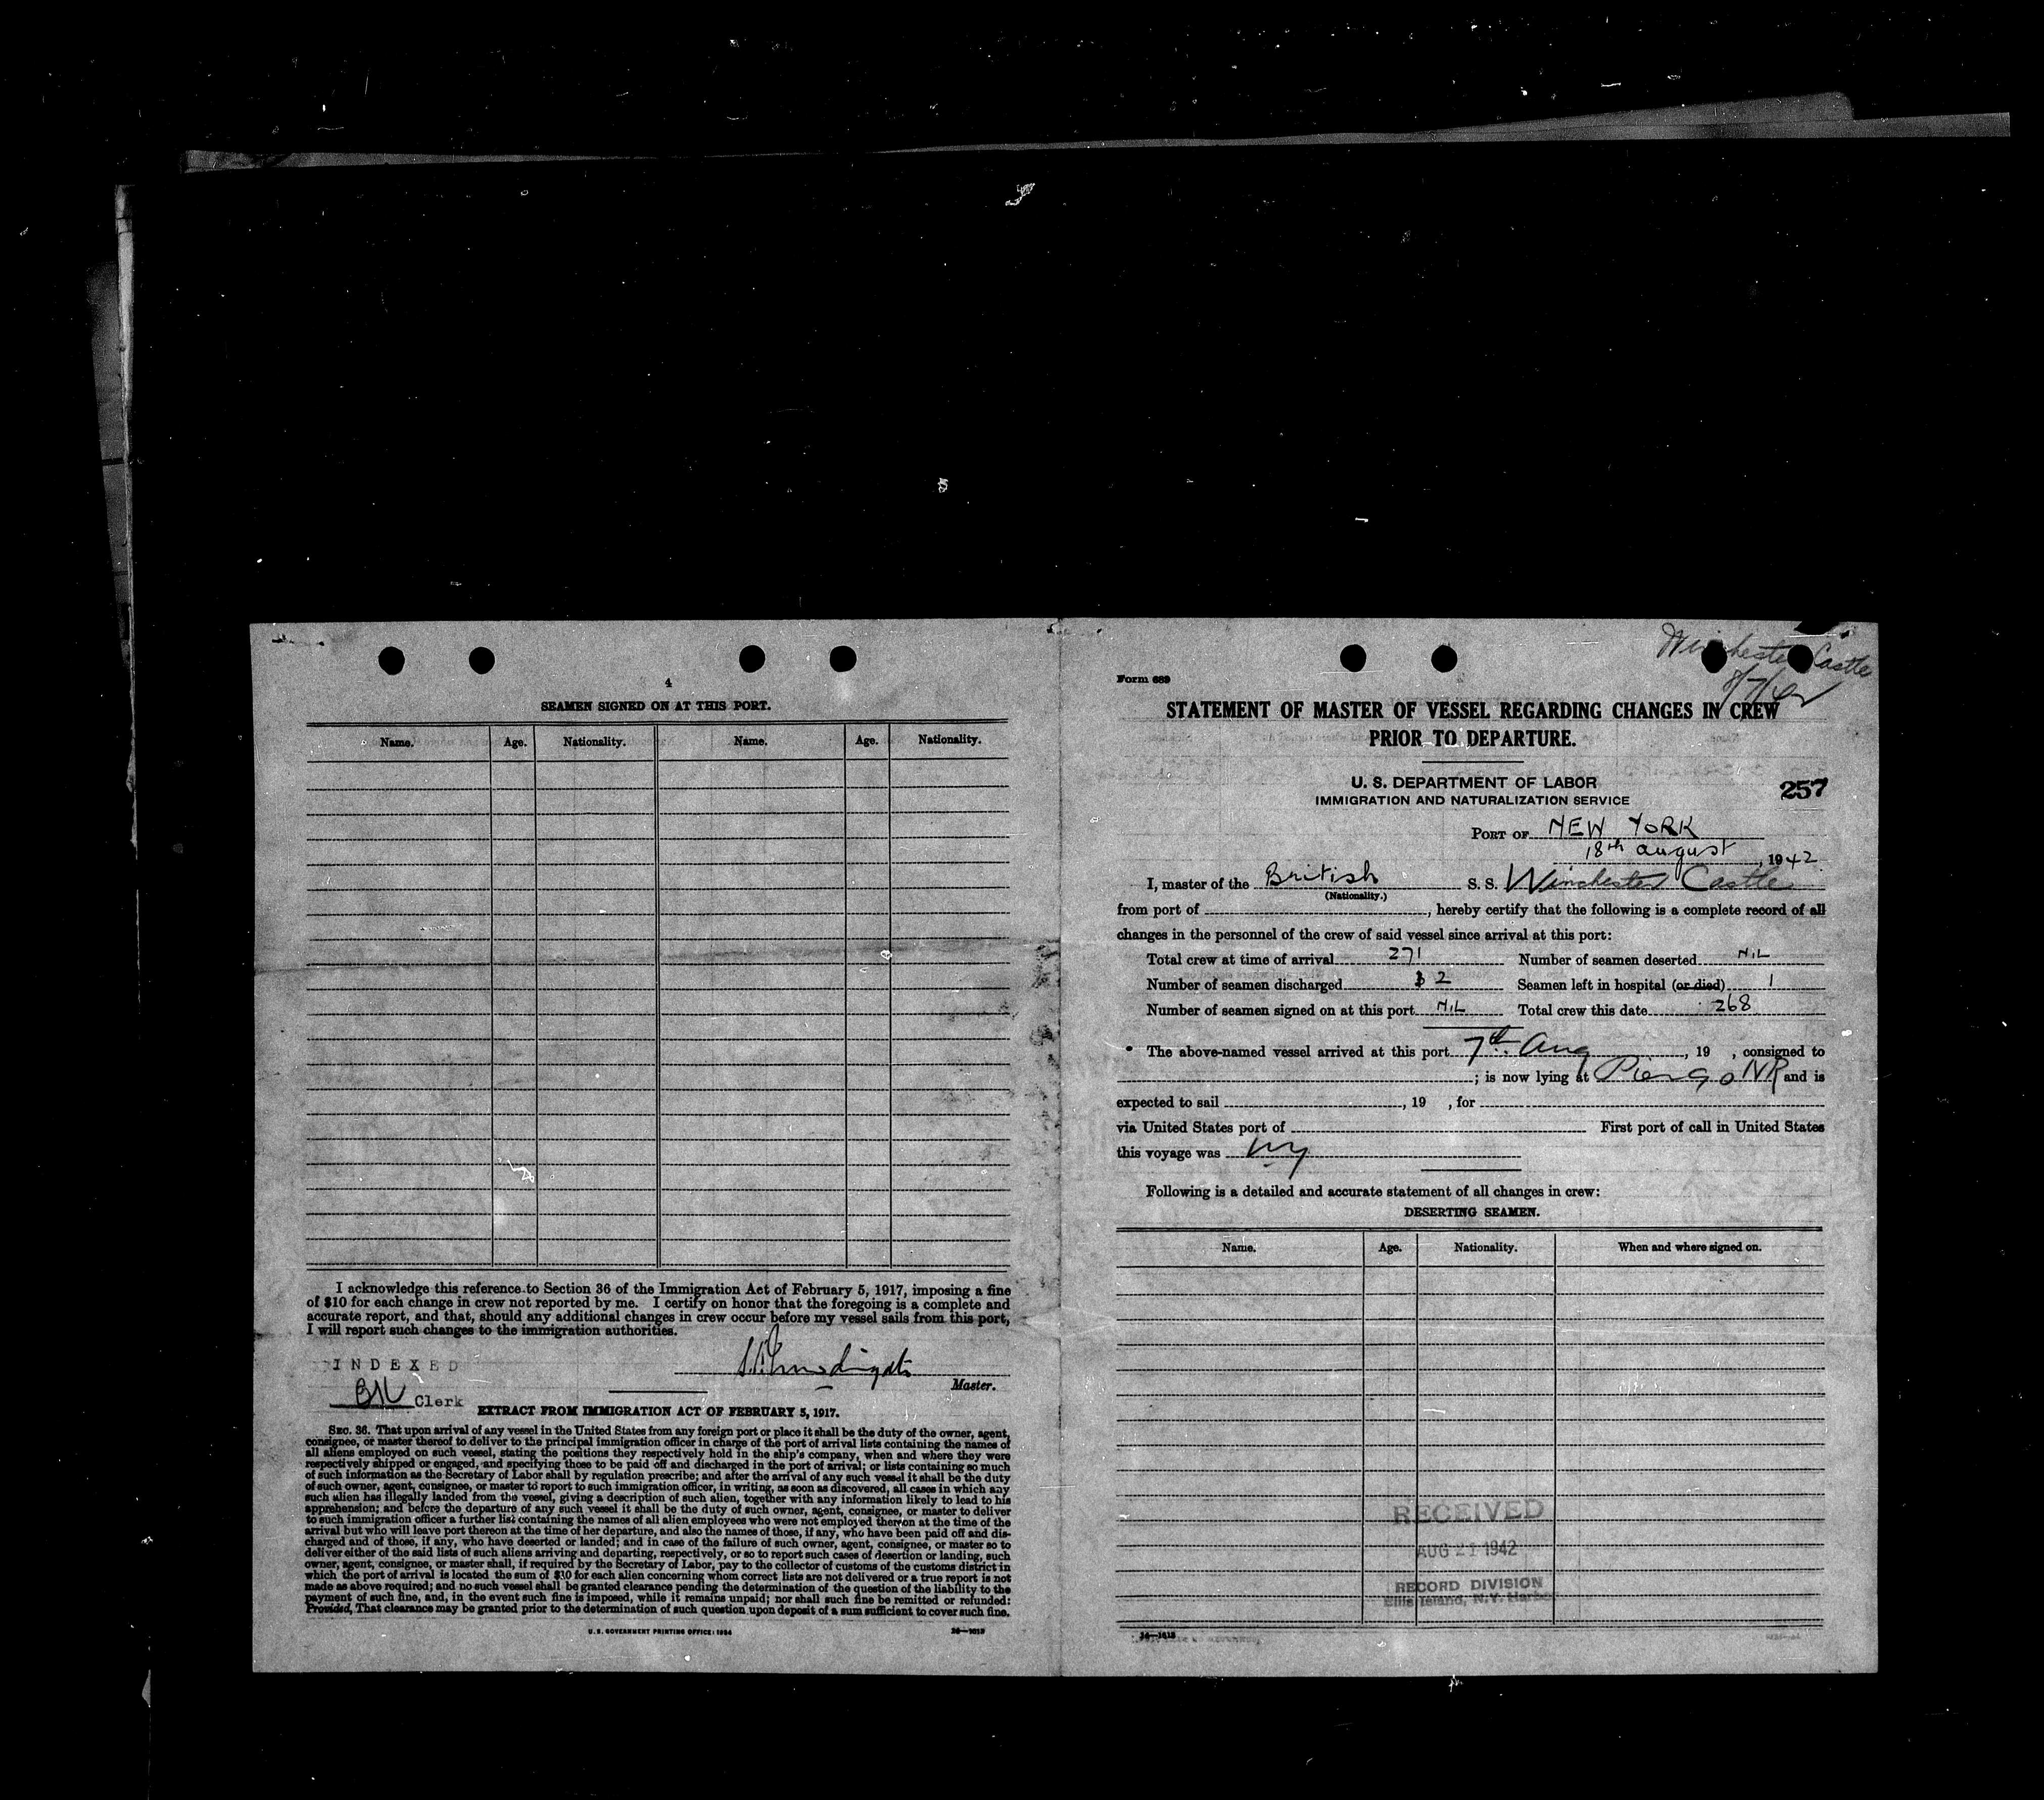 4
SEAMEN SIGNED ON AT THIS PORT.
Name. Age. Nationality. Name. Age. Nationality.
I acknowledge this reference to Section 36 of the Immigration Act of February 5, 1917, imposing a fine
of $10 for each change in crew not reported by me. I certify on honor that the foregoing is a complete and
accurate report, and that, should any additional changes in crew occur before my vessel sails from this port,
I will report such changes to the immigration authorities.
INDEXED
Master.
Clerk
EXTRACT FROM IMMIGRATION ACT OF FEBRUARY 5, 1917.
SEC. 36. That upon arrival of any vessel in the United States from any foreign port or place it shall be the duty of the owner, agent,
consignee, or master thereof to deliver to the principal immigration officer in charge of the port of arrival lists containing the names of
all aliens employed on such vessel, stating the positions they respectively hold in the ship's company, when and where they were
respectively shipped or engaged, and specifying those to be paid off and discharged in the port of arrival; or lists containing so much
of such information as the Secretary of Labor shall by regulation prescribe; and after the arrival of any such vessel it shall be the duty
of such owner, agent, consignee, or master to report to such immigration officer, in writing, as soon as discovered, all cases in which any
such alien has illegally landed from the vessel, giving a description of such alien, together with any information likely to lead to his
apprehension; and before the departure of any such vessel it shall be the duty of such owner, agent, consignee, or master to deliver
to such immigration officer a further list containing the names of all alien employees who were not employed thereon at the time of the
arrival but who will leave port thereon at the time of her departure, and also the names of those, if any, who have been paid off and dis-
charged and of those, if any, who have deserted or landed; and in case of the failure of such owner, agent, consignee, or master so to
deliver either of the said lists of such aliens arriving and departing, respectively, or so to report such cases of desertion or landing, such
owner, agent, consignee, or master shall, if required by the Secretary of Labor, pay to the collector of customs of the customs district in
which the port of arrival is located the sum of $10 for each alien concerning whom correct lists are not delivered or a true report is not
made as above required; and no such vessel shall be granted clearance pending the determination of the question of the liability to the
payment of such fine, and, in the event such fine is imposed, while it remains unpaid; nor shall such fine be remitted or refunded:
Provided, That clearance may be granted prior to the determination of such question upon deposit of a sum sufficient to cover such fine.
U. S. GOVERNMENT PRINTING OFFICE: 1934 14—1613
Winchester Castle
8/7/42
Form 689
STATEMENT OF MASTER OF VESSEL REGARDING CHANGES IN CREW
PRIOR TO DEPARTURE.
U. S. DEPARTMENT OF LABOR
IMMIGRATION AND NATURALIZATION SERVICE
257
PORT OF NEW YORK
18th august, 1942
I, master of the British S. S. Winchester Castle
(Nationality.)
from port of , hereby certify that the following is a complete record of all
changes in the personnel of the crew of said vessel since arrival at this port:
Total crew at time of arrival 271 Number of seamen deserted NIL
Number of seamen discharged 2 Seamen left in hospital (or died) 1
Number of seamen signed on at this port NIL Total crew this date 268
The above-named vessel arrived at this port 7th Aug, 19 , consigned to
; is now lying at Pier 90 NR and is
expected to sail , 19 , for
via United States port of First port of call in United States
this voyage was NY
Following is a detailed and accurate statement of all changes in crew:
DESERTING SEAMEN.
Name. Age. Nationality. When and where signed on.
RECEIVED
AUG 21 1942
RECORD DIVISION
Ellis Island, N.Y. Harbor
14—1613